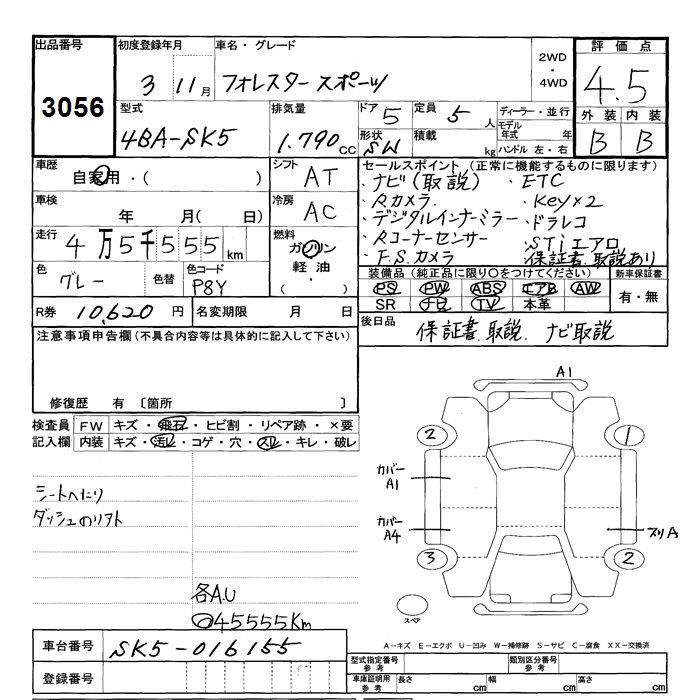 出品番号
3056
初度登録年月
3 11月
車名・グレード
フォレスター スポーツ
2WD
・
4WD
評価点
4.5
外装 内装
B B
型式
4BA-SK5
排気量
1.790cc
ドア 5
形状 SW
定員 5人
積載 kg
ディーラー・並行
モデル年式 年
ハンドル 左・右
車歴
自家用・( )
シフト
AT
車検
年 月(日)
冷房
AC
走行
4万5千555km
燃料
ガソリン
軽油
( ・ )
色
グレー
色替
色コード
P8Y
セールスポイント(正常に機能するものに限ります)
・ナビ(取説) ・ETC
・Rカメラ ・Key×2
・デジタルインナーミラー ・ドラレコ
・Rコーナーセンサー ・STiエアロ
・F.S.カメラ 保証書.取説あり
装備品(純正品に限り○をつけてください)
PS PW ABS エアB AW
SR ナビ TV 本革
新車保証書
有・無
R券 10,620円
名変期限 月 日
後日品
保証書.取説. ナビ取説
注意事項申告欄(不具合内容等は具体的に記入して下さい)
修復歴 有 〔箇所 〕
検査員記入欄
FW キズ・飛石・ヒビ割・リペア跡・×要
内装 キズ・汚レ・コゲ・穴・スレ・キレ・破レ
シートへたり
ダッシュのリフト
各A.U
○45555Km
A1
2
1
カバー
A1
カバー
A4
スリA
3
2
スペア
A-キズ E-エクボ U-凹み W-補修跡 S-サビ C-腐食 XX-交換済
車台番号
SK5-016155
登録番号
型式指定番号
参考
類別区分番号
参考
車庫証明用
参考
長さ cm
幅 cm
高さ cm